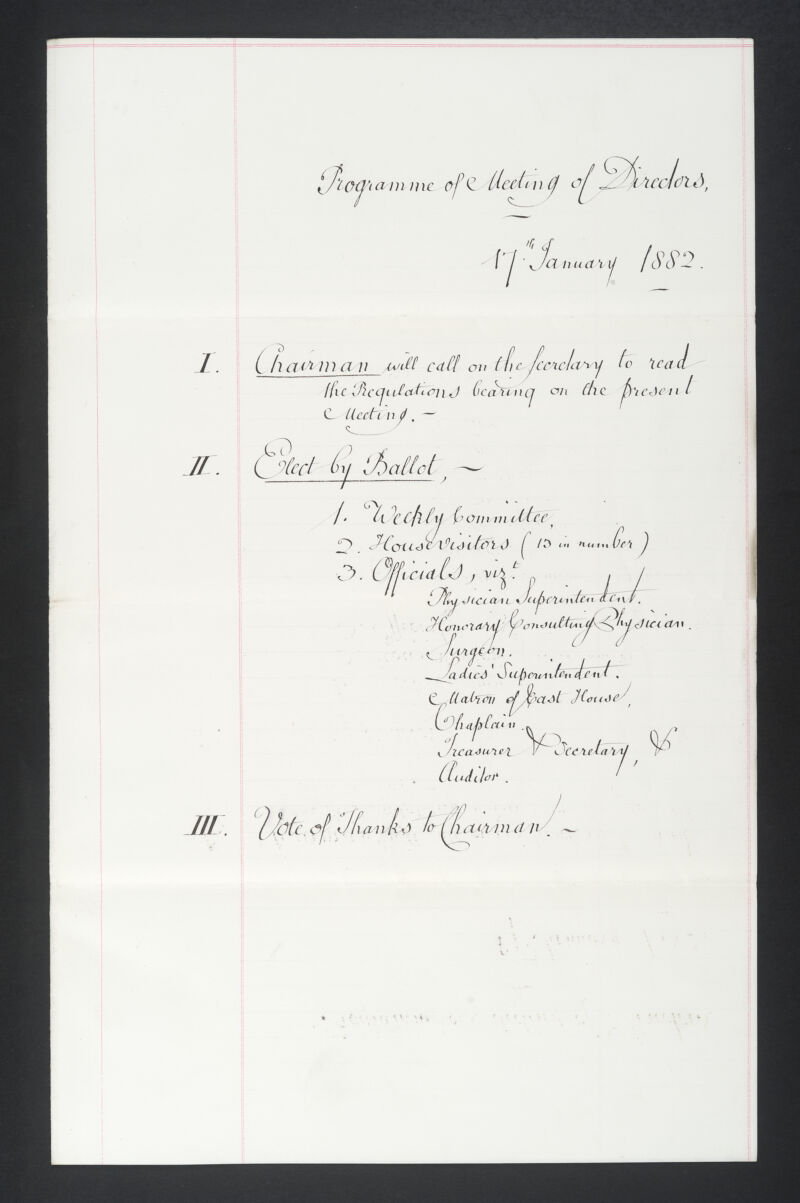 Programme of Meeting of Directors,
17th January 1882.
I. Chairman will call on the Secretary to read
the Regulations bearing on the present
Meeting. –
II. Elect by Ballot, –
1. Weekly Committee,
2. House Visitors (13 in number)
3. Officials, vizt.
Physician Superintendent.
Honorary Consulting Physician.
Surgeon.
Ladies' Superintendent.
Matron of East House,
Chaplain.
Treasurer & Secretary, &
Auditor.
III. Vote of Thanks to Chairman. –